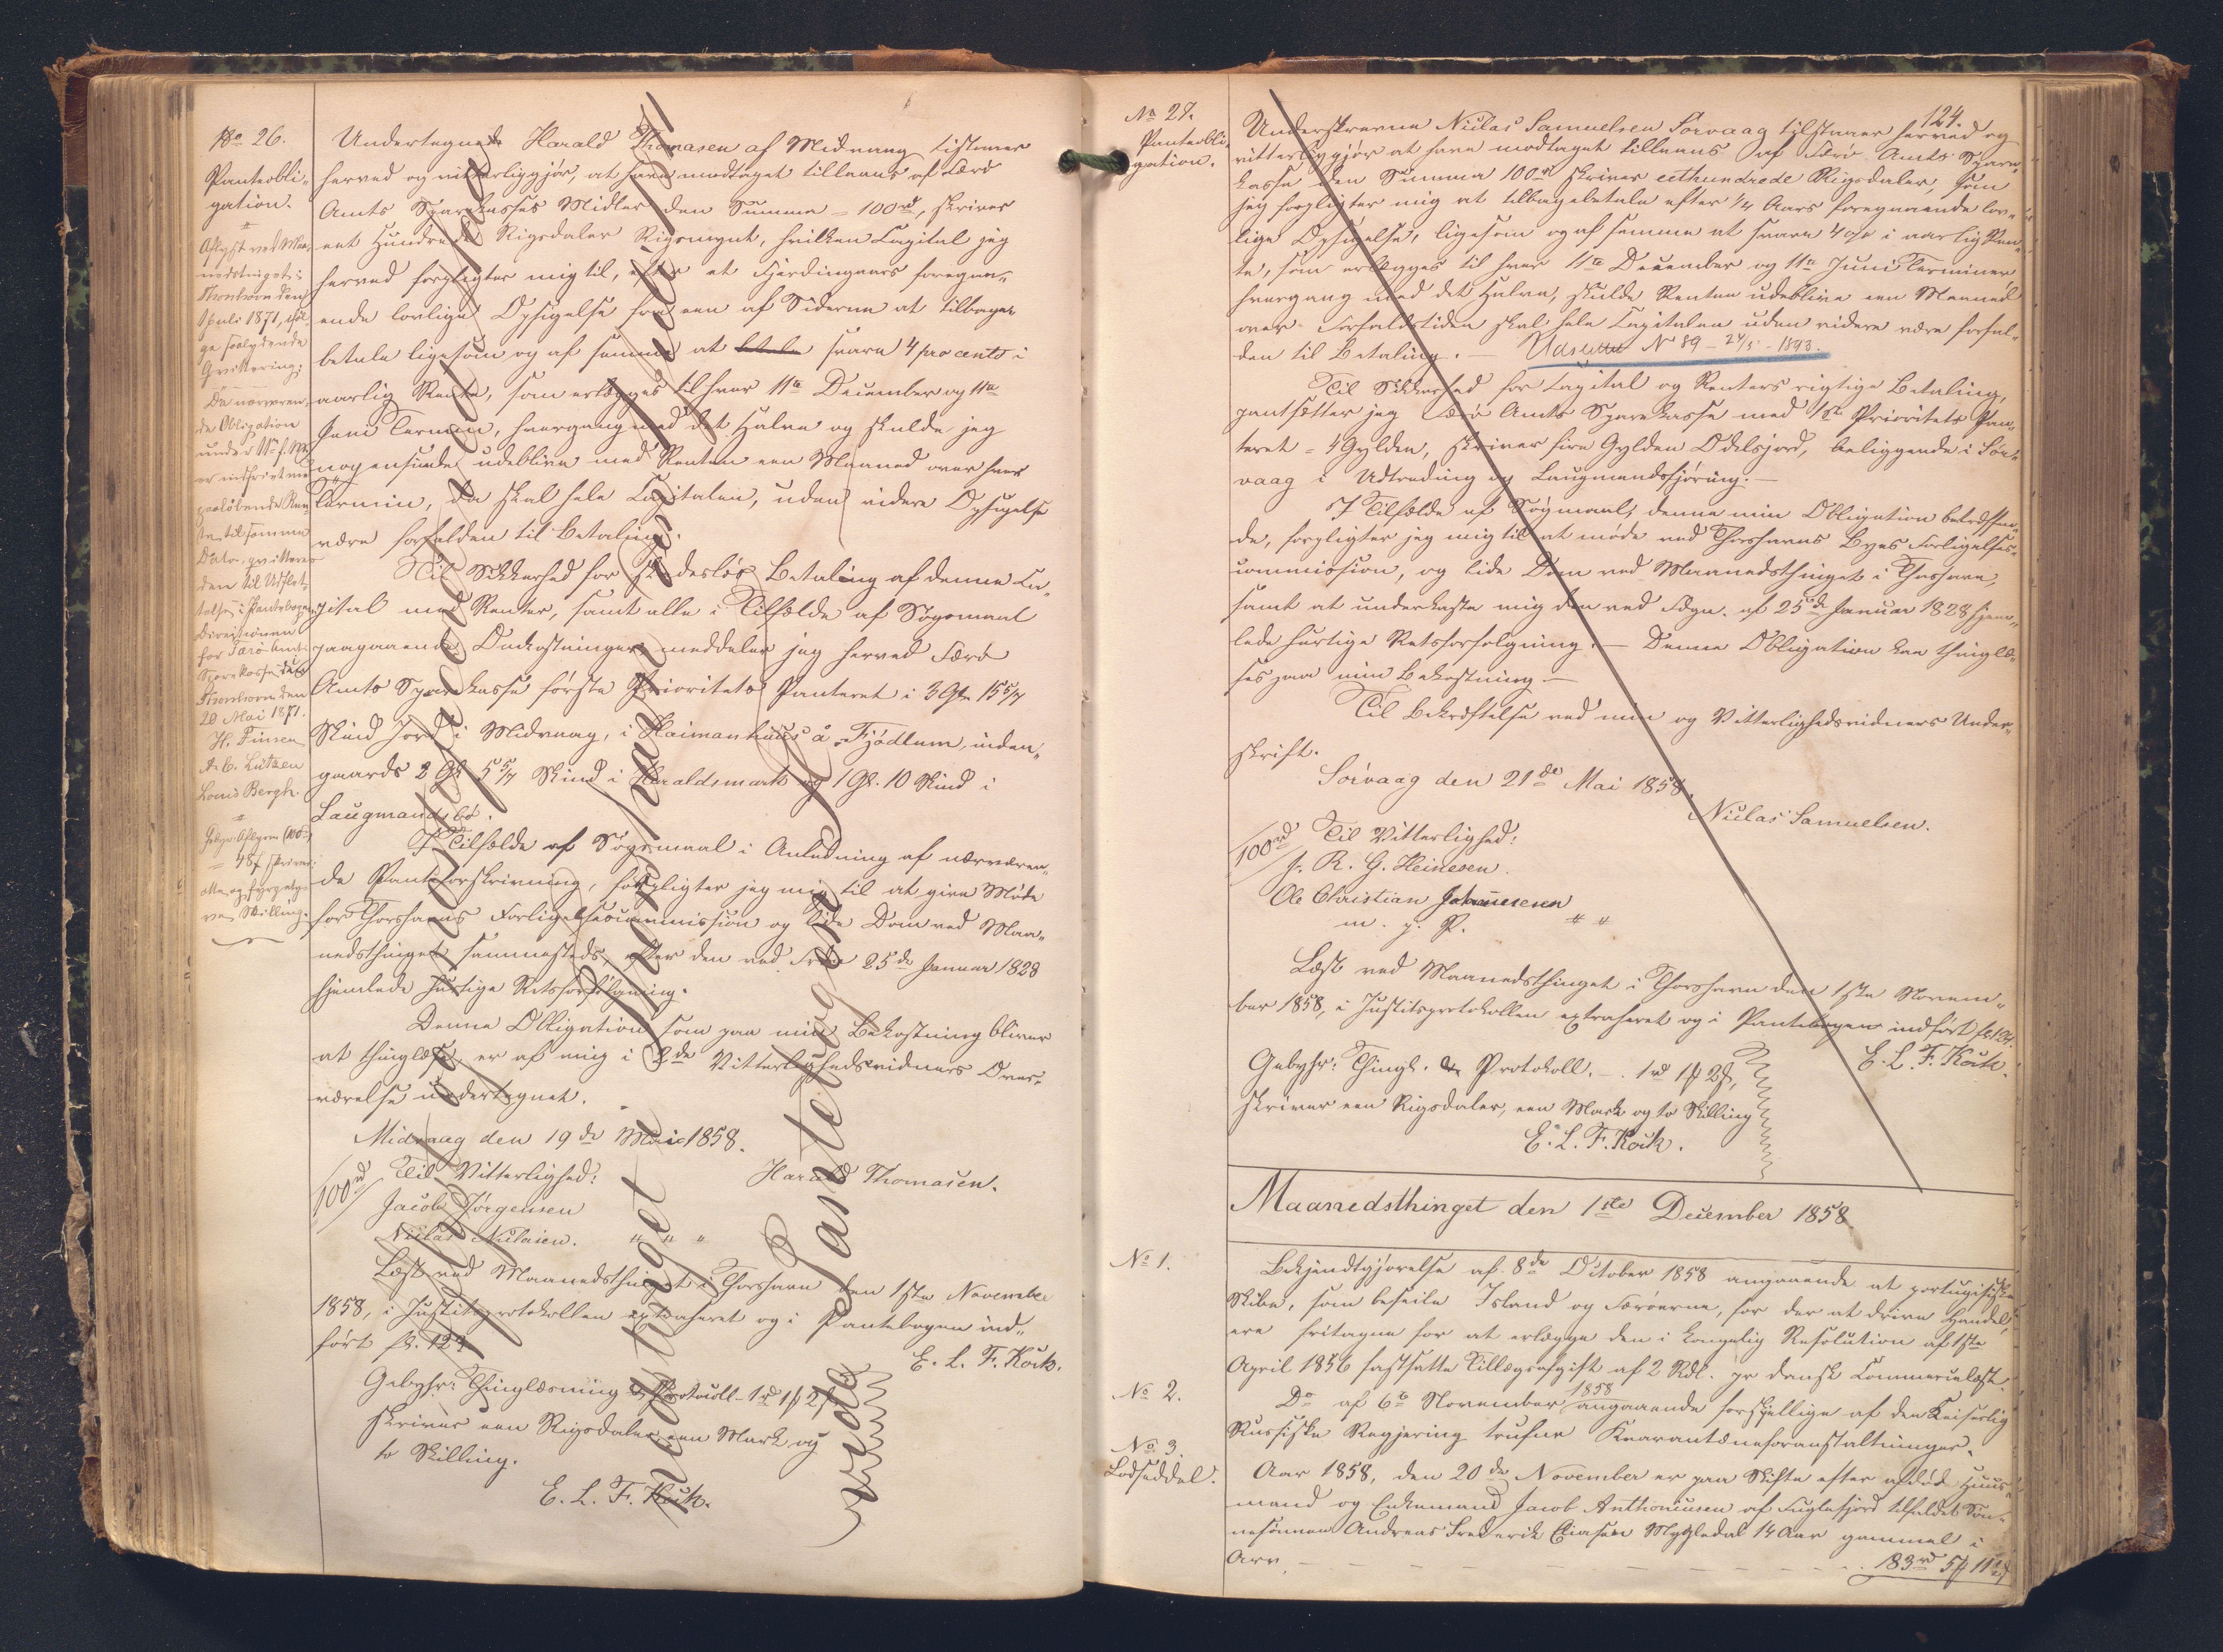 No 26.
Panteobli-
gation.
Aflyst ved Maa-
nedsthinget i
Thorshavn den
1 Juli 1871, iføl-
ge saalydende
Qvittering:
Da nærværen-
de Obligation
under 11te f. M.
er indfriet med
paaløbende Ren-
ter til samme
Dato, qvitteres
den til Udslet-
telse i Pantebogen
Directionen
for Færø Amts
Sparekasse
Thorshavn den
20 Mai 1871.
H. Finsen
A. C. Lützen
Louis Bergh.
Gebyr: Aflysn (100 rd)
= 48 s skriver:
otte og fyrgetyve
Skilling.
Undertegnede Harald Thomasen af Midvaag tilstaaer
herved og vitterliggjør, at have modtaget tillaans af Færø
Amts Sparekasses Midler den Summa = 100 rd, skriver
eet Hundrede Rigsdaler Rigsmynt, hvilken Capital jeg
herved forpligter mig til, efter et Fjerdingaars foregaa-
ende lovlige Opsigelse fra een af Siderne at tilbage-
betale ligesom og af samme at betale svare 4 pro cento i
aarlig Rente, som erlægges til hver 11te December og 11te
Juni Termin, hvergang med det Halve og skulde jeg
nogensinde udeblive med Renten een Maaned over hver
Termin, da skal hele Capitalen, uden videre Opsigelse
være forfalden til Betaling.
Til Sikkerhed for skadesløs Betaling af denne Ca-
pital med Renter, samt alle i Tilfælde af Søgsmaal
paagaaende Omkostninger meddeler jeg herved Færø
Amts Sparekasse første Prioritets Panteret i 3 Gl. 15 5/7
Skind Jord i Midvaag, i Haimanhuus å Fjödlum, inden-
gaards 2 Gl 5 5/7 Skind i Haraldsmark og 1 Gl. 10 Skind i
Laugmands bø.
I Tilfælde af Søgsmaal i Anledning af nærværen-
de Panteforskrivning, forpligter jeg mig til at give Møde
for Thorshavns Forligelsescommission og lide Dom ved Maa-
nedsthinget sammesteds, efter den ved Frdn 25de Januar 1828
hjemlede hurtige Retsforfølgning.
Denne Obligation som paa min Bekostning bliver
at thinglæse, er af mig i 2de Vitterlighedsvidners Over-
værelse undertegnet.
Midvaag den 19de Mai 1858.
Harald Thomasen.
100 rd Til Vitterlighed:
Jacob Jørgensen
Niclas Niclaisen. " " "
Læst ved Maanedsthinget i Thorshavn den 1ste November
1858, i Justitsprotokollen extraheret og i Pantebogen ind-
ført fol. 124
E. L. F. Kock.
Gebyhr: Thinglæsning & Protocoll - 1 rd 1 mk 2 s
skriver een Rigsdaler, een Mark og
to Skilling.
E. L. F. Kock.
124.
No 27.
Panteobli-
gation.
Underskrevne Niclas Samuelsen Sørvaag tilstaaer herved og
vitterliggjør at have modtaget tillaans af Færø Amts Spare-
kasse den Summa 100 rd skriver eethundrede Rigsdaler, som
jeg forpligter mig at tilbagebetale efter 1/4 Aars foregaaende lov-
lige Opsigelse, ligesom og af samme at svare 4 o/o i aarlig Ren-
te, som erlægges til hver 11te December og 11te Juni Terminer
hvergang med det Halve, skulde Renten udeblive een Maaned
over Forfaldstiden skal hele Capitalen uden videre være forfal-
den til Betaling. — Udslettet No 89 - 24/5 - 1893.
Til Sikkerhed for Capital og Renters rigtige Betaling,
pantsætter jeg Færø Amts Sparekasse med 1ste Prioritets Pan-
teret = 4 Gylden, skriver fire Gylden Odelsjord, beliggende i Sør-
vaag i Udtrading og Laugmandshjøring. —
I Tilfælde af Søgmaal, denne min Obligation betræffen-
de, forpligter jeg mig til at møde ved Thorshavns Byes Forligelses-
commission, og lide Dom ved Maanedsthinget i Thorshavn,
samt at underkaste mig den ved Frdgn. af 25de Januar 1828 hjem-
lede hurtige Retsforfølgning. — Denne Obligation kan thinglæ-
ses paa min Bekostning. —
Til Bekræftelse ved min og Vitterlighedsvidners Under-
skrift.
Sørvaag den 21de Mai 1858.
Niclas Samuelsen.
100 rd Til Vitterlighed:
J. R. G. Heinesen.
Ole Christian Johannesen
m. p. P. " "
Læst ved Maanedsthinget i Thorshavn den 1ste Novem-
ber 1858, i Justitsprotokollen extraheret og i Pantebogen indført fol 124.
E. L. F. Kock.
Gebyhr: Thingl. & Protokoll. - . 1 rd 1 mk 2 s,
skriver een Rigsdaler, een Mark og to Skilling
E. L. F. Kock.
Maanedsthinget den 1ste December 1858
No 1.
Bekjendtgjørelse af 8de October 1858 angaaende at portugisiske
Skibe, som beseile Island og Færøerne, for der at drive Handel,
ere fritagne for at erlægge den i kongelig Resolution af 1ste
April 1856 fastsatte Tillægsafgift af 2 Rdl. pr dansk Commercelæst.
No 2.
Do af 6te November 1858 angaaende forskjellige af den Keiserlig
Russiske Regjering trufne Karantæneforanstaltninger.
No 3.
Lodseddel.
Aar 1858, den 20de November er paa Skifte efter afdøde Huus-
mand og Enkemand Jacob Anthoniusen af Fuglefjord tilfaldet Søn-
nesønnen Andreas Frederik Eliasen Mygledal 14 Aar gammel i
Arv. — — — — — 83 rd 5 mk 11 1/2 s